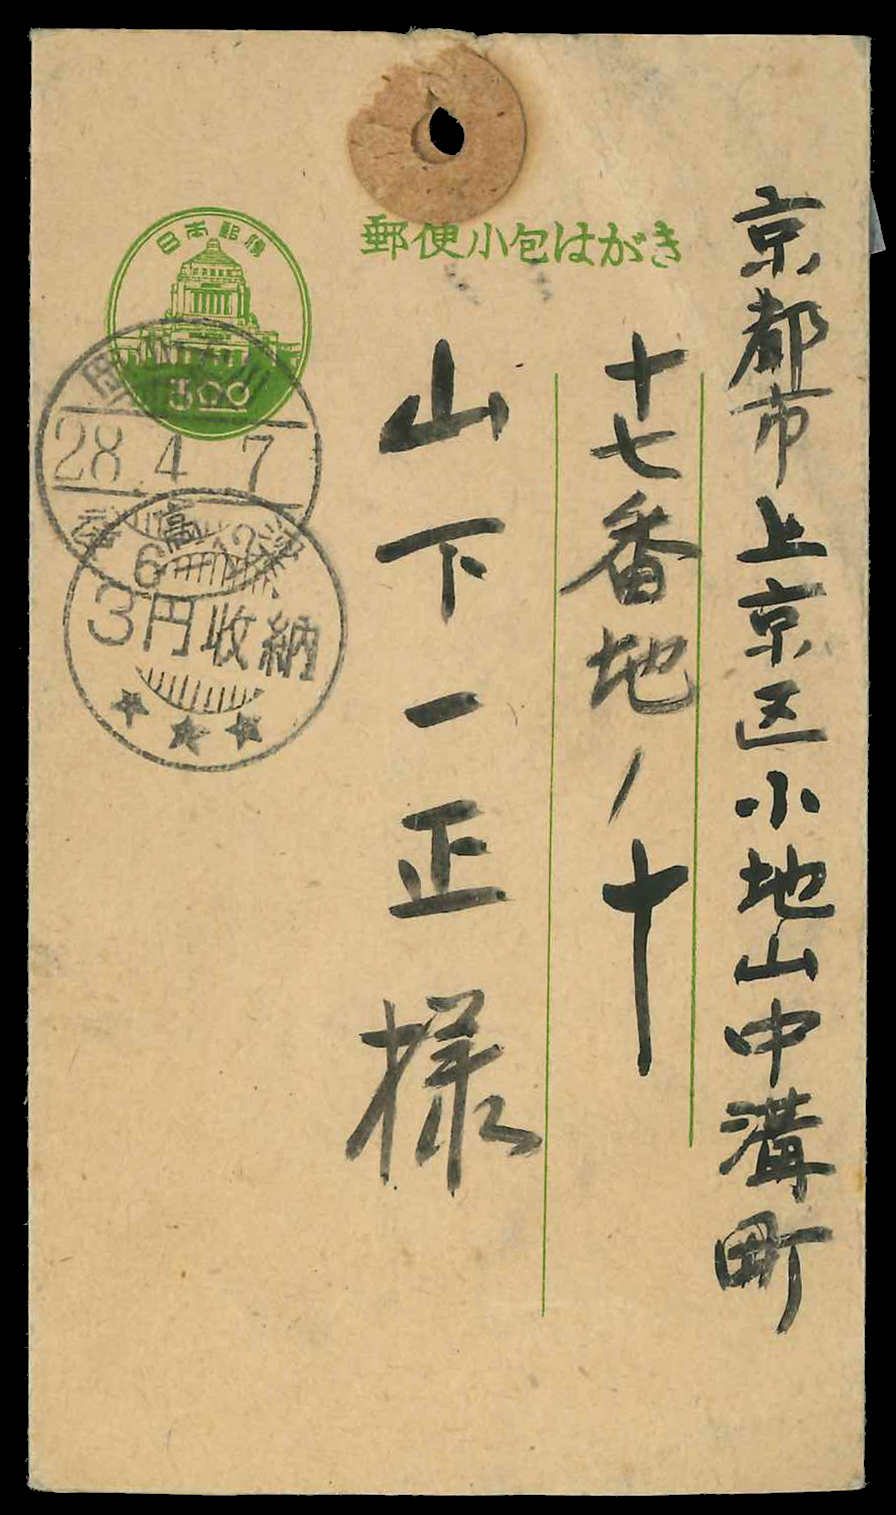 郵便小包はがき
京都市上京区小地山中溝町
十七番地ノ十
山下一正様
日本郵便
5.00
28.4.7
高
3円収納